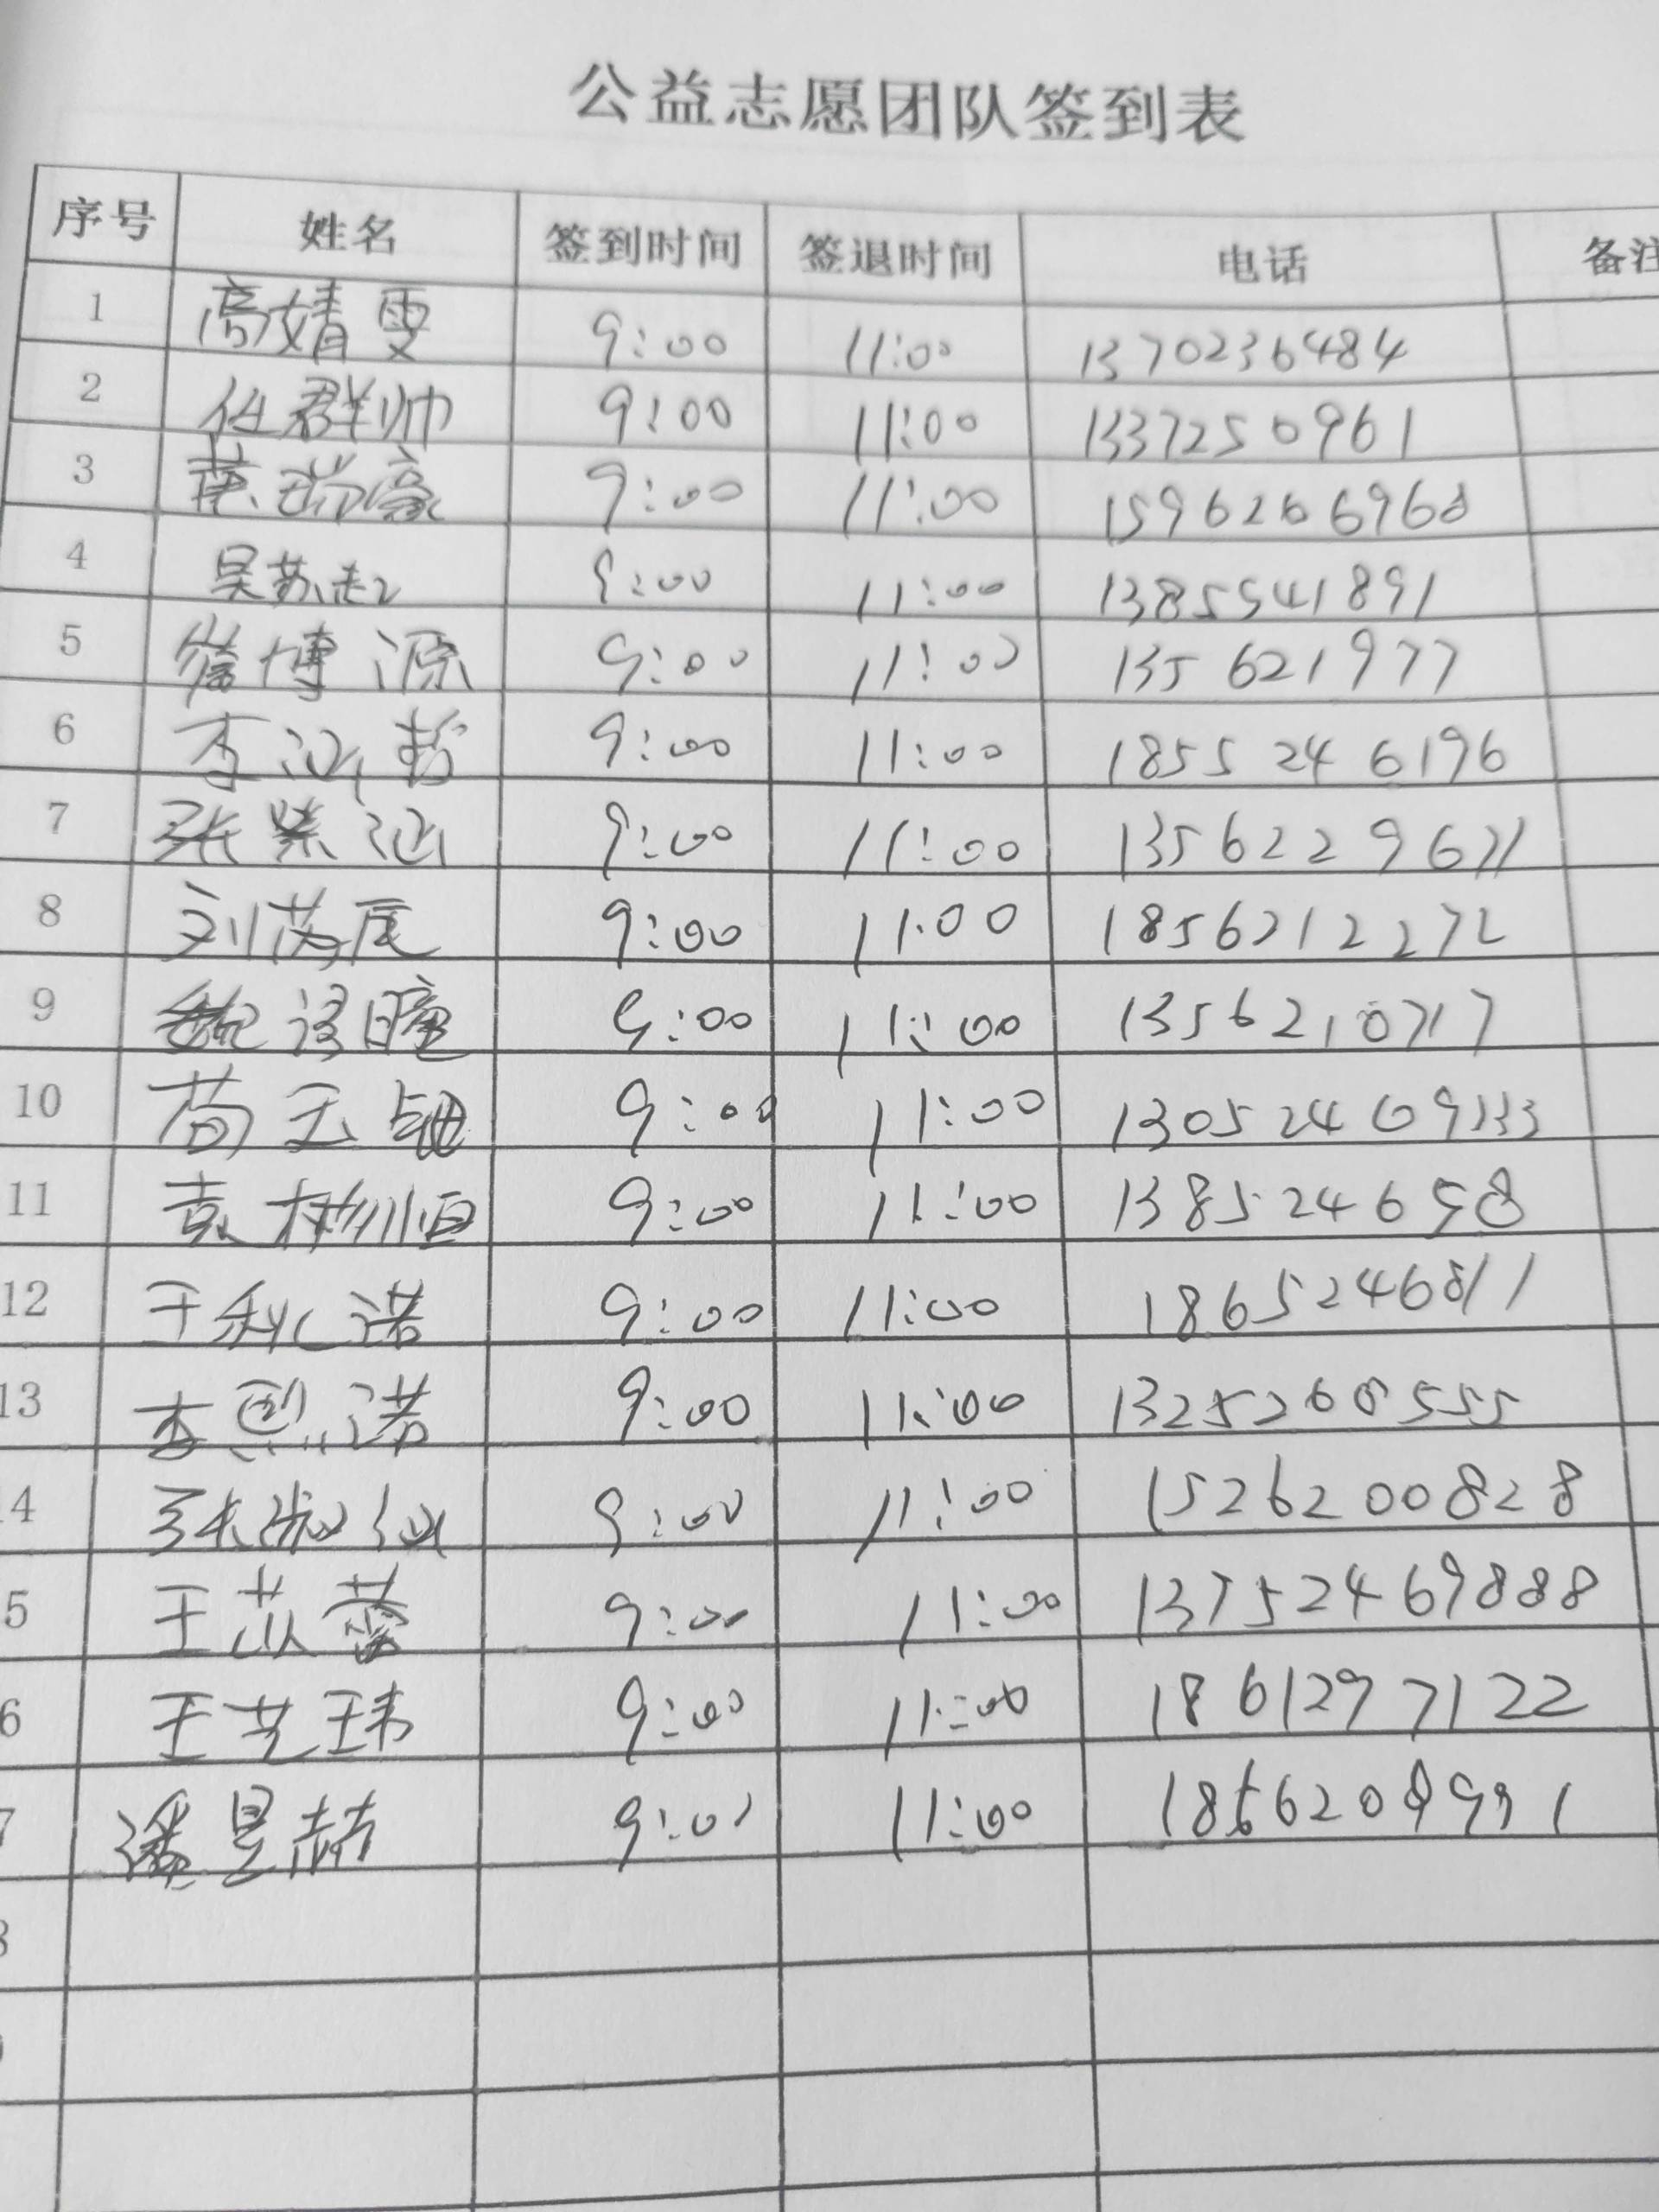 公益志愿团队签到表
序号 姓名 签到时间 签退时间 电话 备注
1 高婧雯 9:00 11:00 1370236484
2 任群帅 9:00 11:00 1337250961
3 9:00 11:00 1596266968
4 吴苏 9:00 11:00 1385541891
5 崔博源 9:00 11:00 135621977
6 李涵哲 9:00 11:00 1855246196
7 张紫涵 9:00 11:00
8 刘芮辰 9:00 11:00 1856212272
9 魏 瞳 9:00 11:00
10 苟玉 9:00 11:00
11 袁树恒 9:00 11:00
12 王秋诺 9:00 11:00
13 李恩诺 9:00 11:00
4 张淑仪 9:00 11:00 1526200828
5 王苡蕾 9:00 11:00 13752469888
6 王艺玮 9:00 11:00 18612977122
7 潘昱赫 9:01 11:00
8